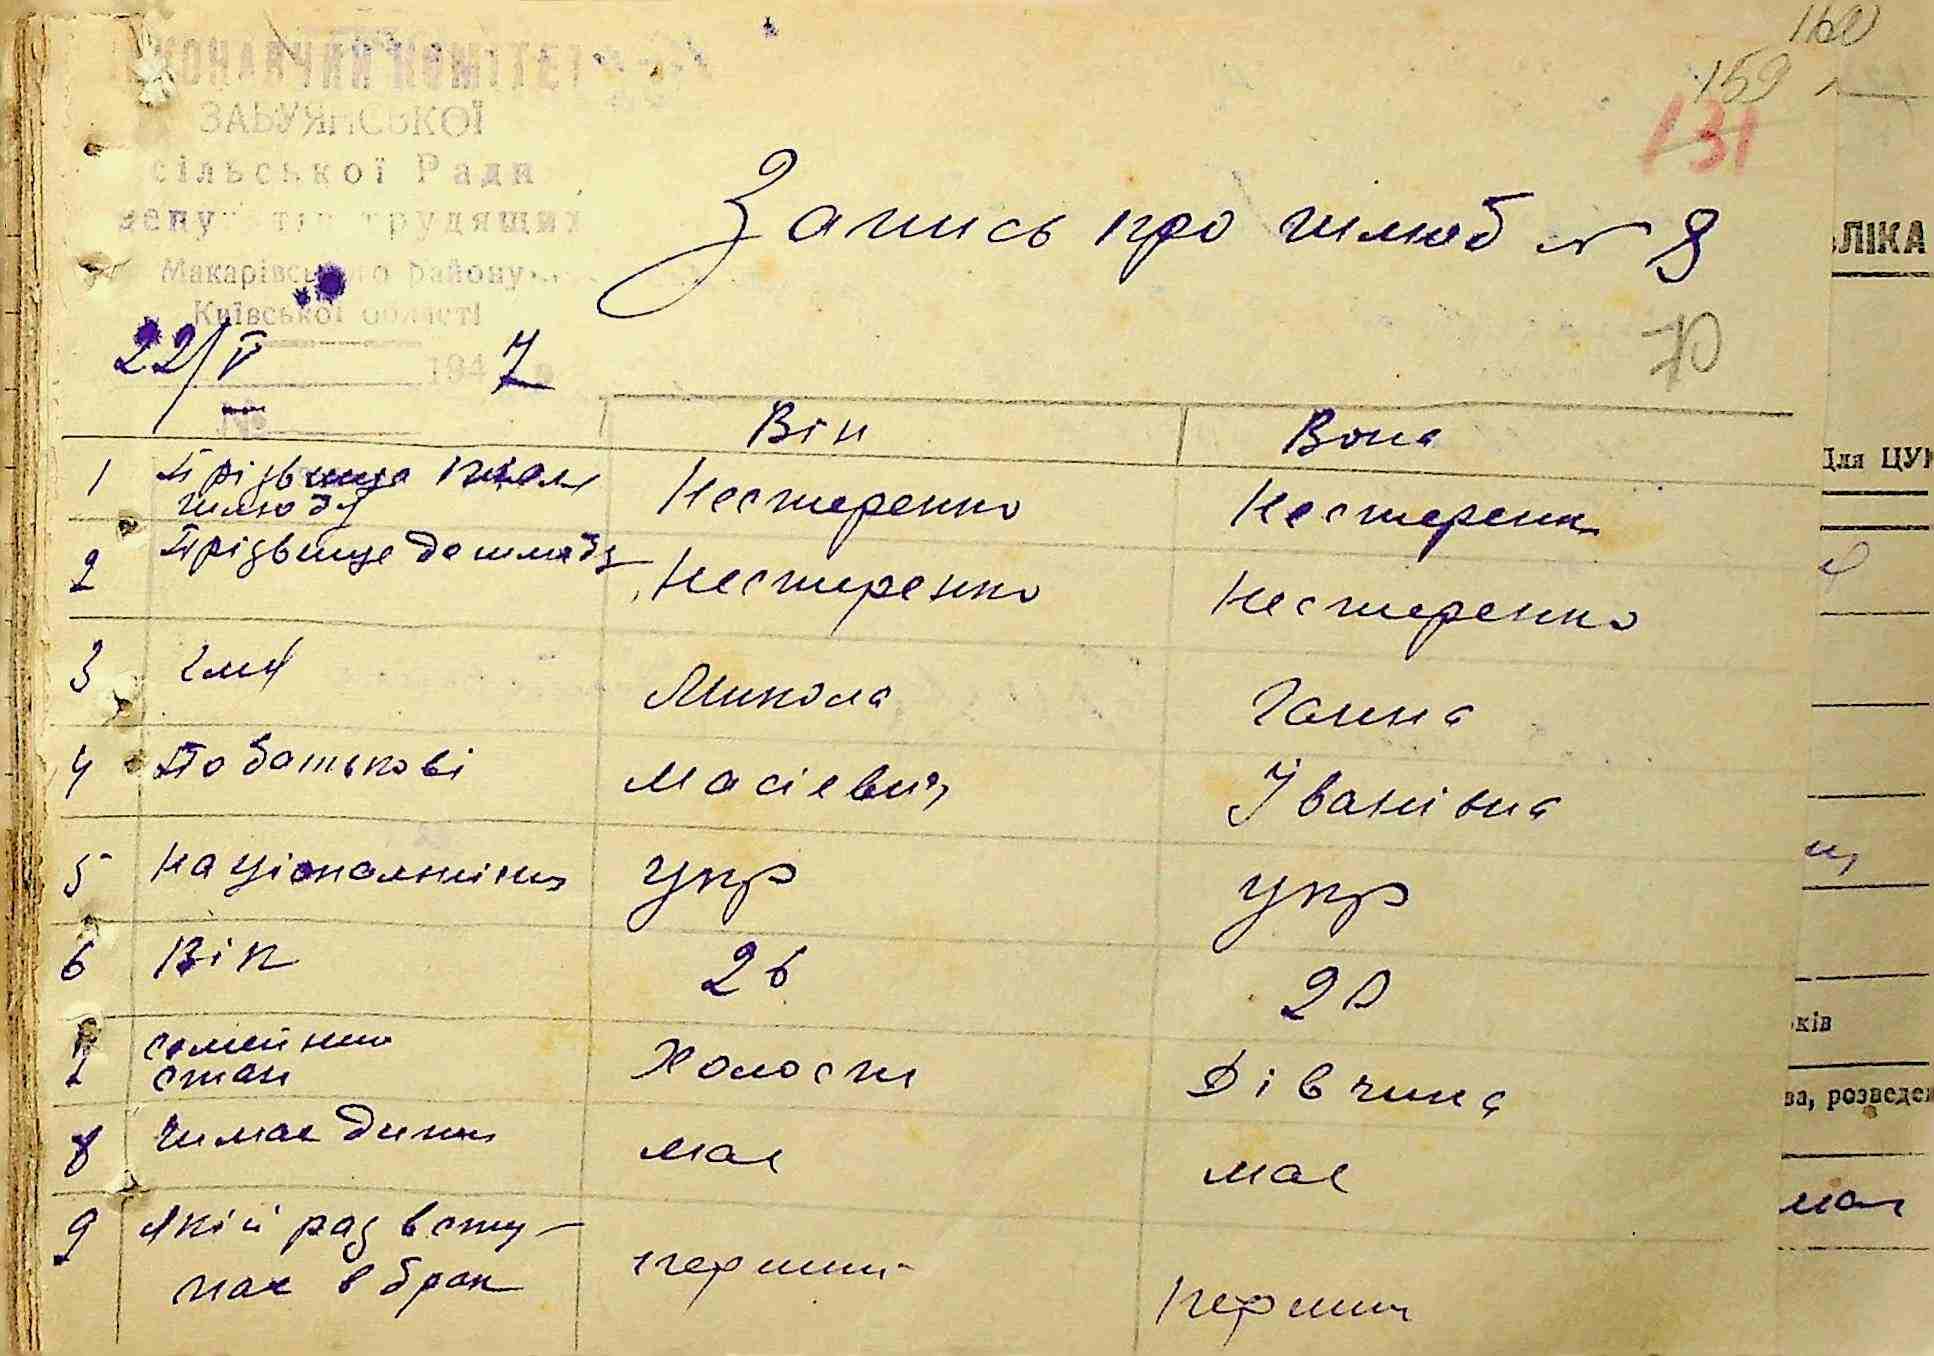 160
159
131
ВИКОНАВЧИЙ КОМІТЕТ
ЗАБУЯНСЬКОЇ
сільської Ради
депутатів трудящих
Макарівського району
Київської області
Запись про шлюб № 8
БЛІКА
22/V 1947
№
70
Він Вона
Для ЦУН
1 Прізвище після шлюбу Нестеренко Нестеренк
2 Прізвище до шлюбу Нестеренко Нестеренко
3 імя Микола Ганна
4 По батькові Масієвич Іванівна
5 Національність укр укр
6 Вік 26 20
ків
7 семейний стан Холости Дівчина
ва, розведен
8 чи має дитин має має
має
9 Якій раз всту-
пає в брак перший перший